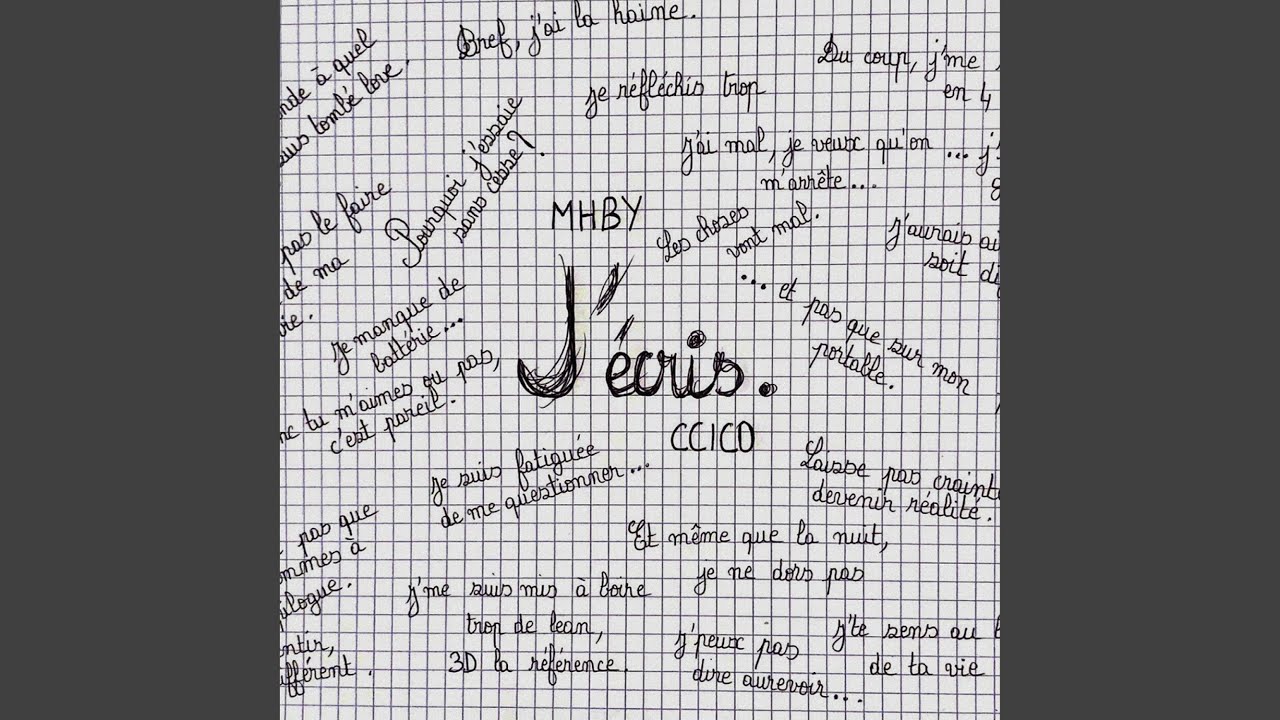 Bref, j'ai la haine.
nde à quel
suis tombé love.
Du coup, j'me
en 4
je réfléchis trop
Pourquoi j'essaie
sans cesse ?
j'ai mal, je veux qu'on ... j'
m'arrête...
pas le faire
de ma
vie.
MHBY
Les choses
vont mal.
j'aurais ai
soit di
... et pas que sur mon
portable.
je manque de
battérie...
J'écris.
nc tu m'aimes ou pas,
c'est pareil.
CCICO
je suis fatiguée
de me questionner ...
Laisse pas crainte
devenir réalité.
pas que
ommes à
pilogue.
Et même que la nuit,
je ne dors pas
j'me suis mis à boire
trop de lean,
3D la référence.
j'peux pas
dire aurevoir...
j'te sens au
de ta vie
ntir,
ifférent.